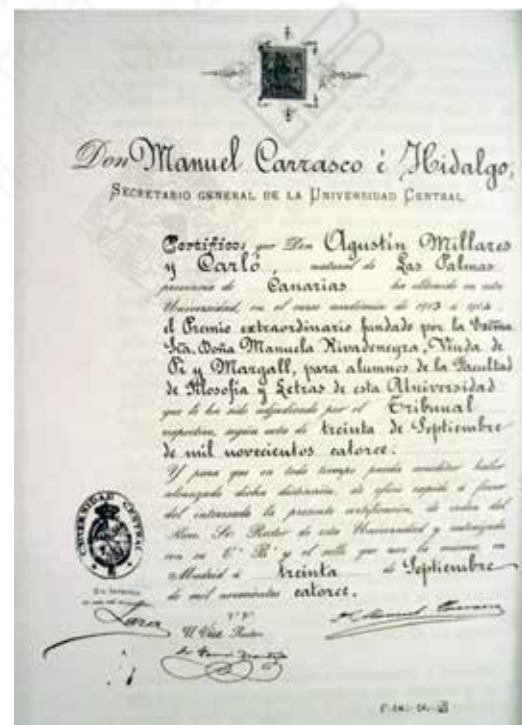 Don Manuel Carrasco é Hidalgo,
SECRETARIO GENERAL DE LA UNIVERSIDAD CENTRAL
Certifico: que Don Agustín Millares
y Carló, natural de Las Palmas
provincia de Canarias ha obtenido en esta
Universidad, en el curso académico de 1913 á 1914
el Premio extraordinario fundado por la Excma.
Sra. Doña Manuela Rivadeneyra, Viuda de
Pi y Margall, para alumnos de la Facultad
de Filosofía y Letras de esta Universidad
que le ha sido adjudicado por el Tribunal
respectivo, según acta de treinta de Septiembre
de mil novecientos catorce.
Y para que en todo tiempo pueda acreditar haber
alcanzado dicha distinción, de oficio expido á favor
del interesado la presente certificación, de orden del
Sr. Rector de esta Universidad y autorizada
con su V.º B.º y el sello que usa la misma en
Madrid á treinta de Septiembre
de mil novecientos catorce.
UNIVERSIDAD CENTRAL
V.º B.º
El Vice Rector